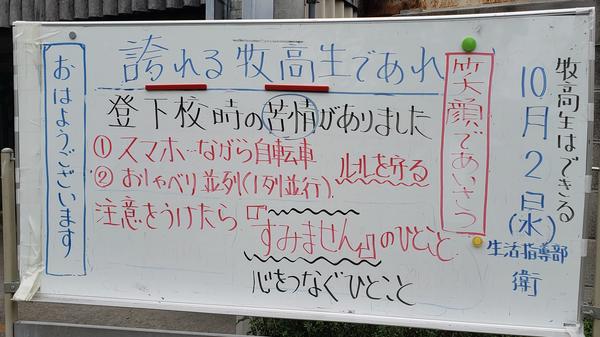 おはようございます
誇れる牧高生であれ
登下校時の苦情がありました
① スマホ…ながら自転車
② おしゃべり並列(1列並行)
ルールを守る
注意をうけたら
『すみません』のひとこと
心をつなぐひとこと
笑顔であいさつ
牧高生はできる
10月2日(水)
生活指導部
衛